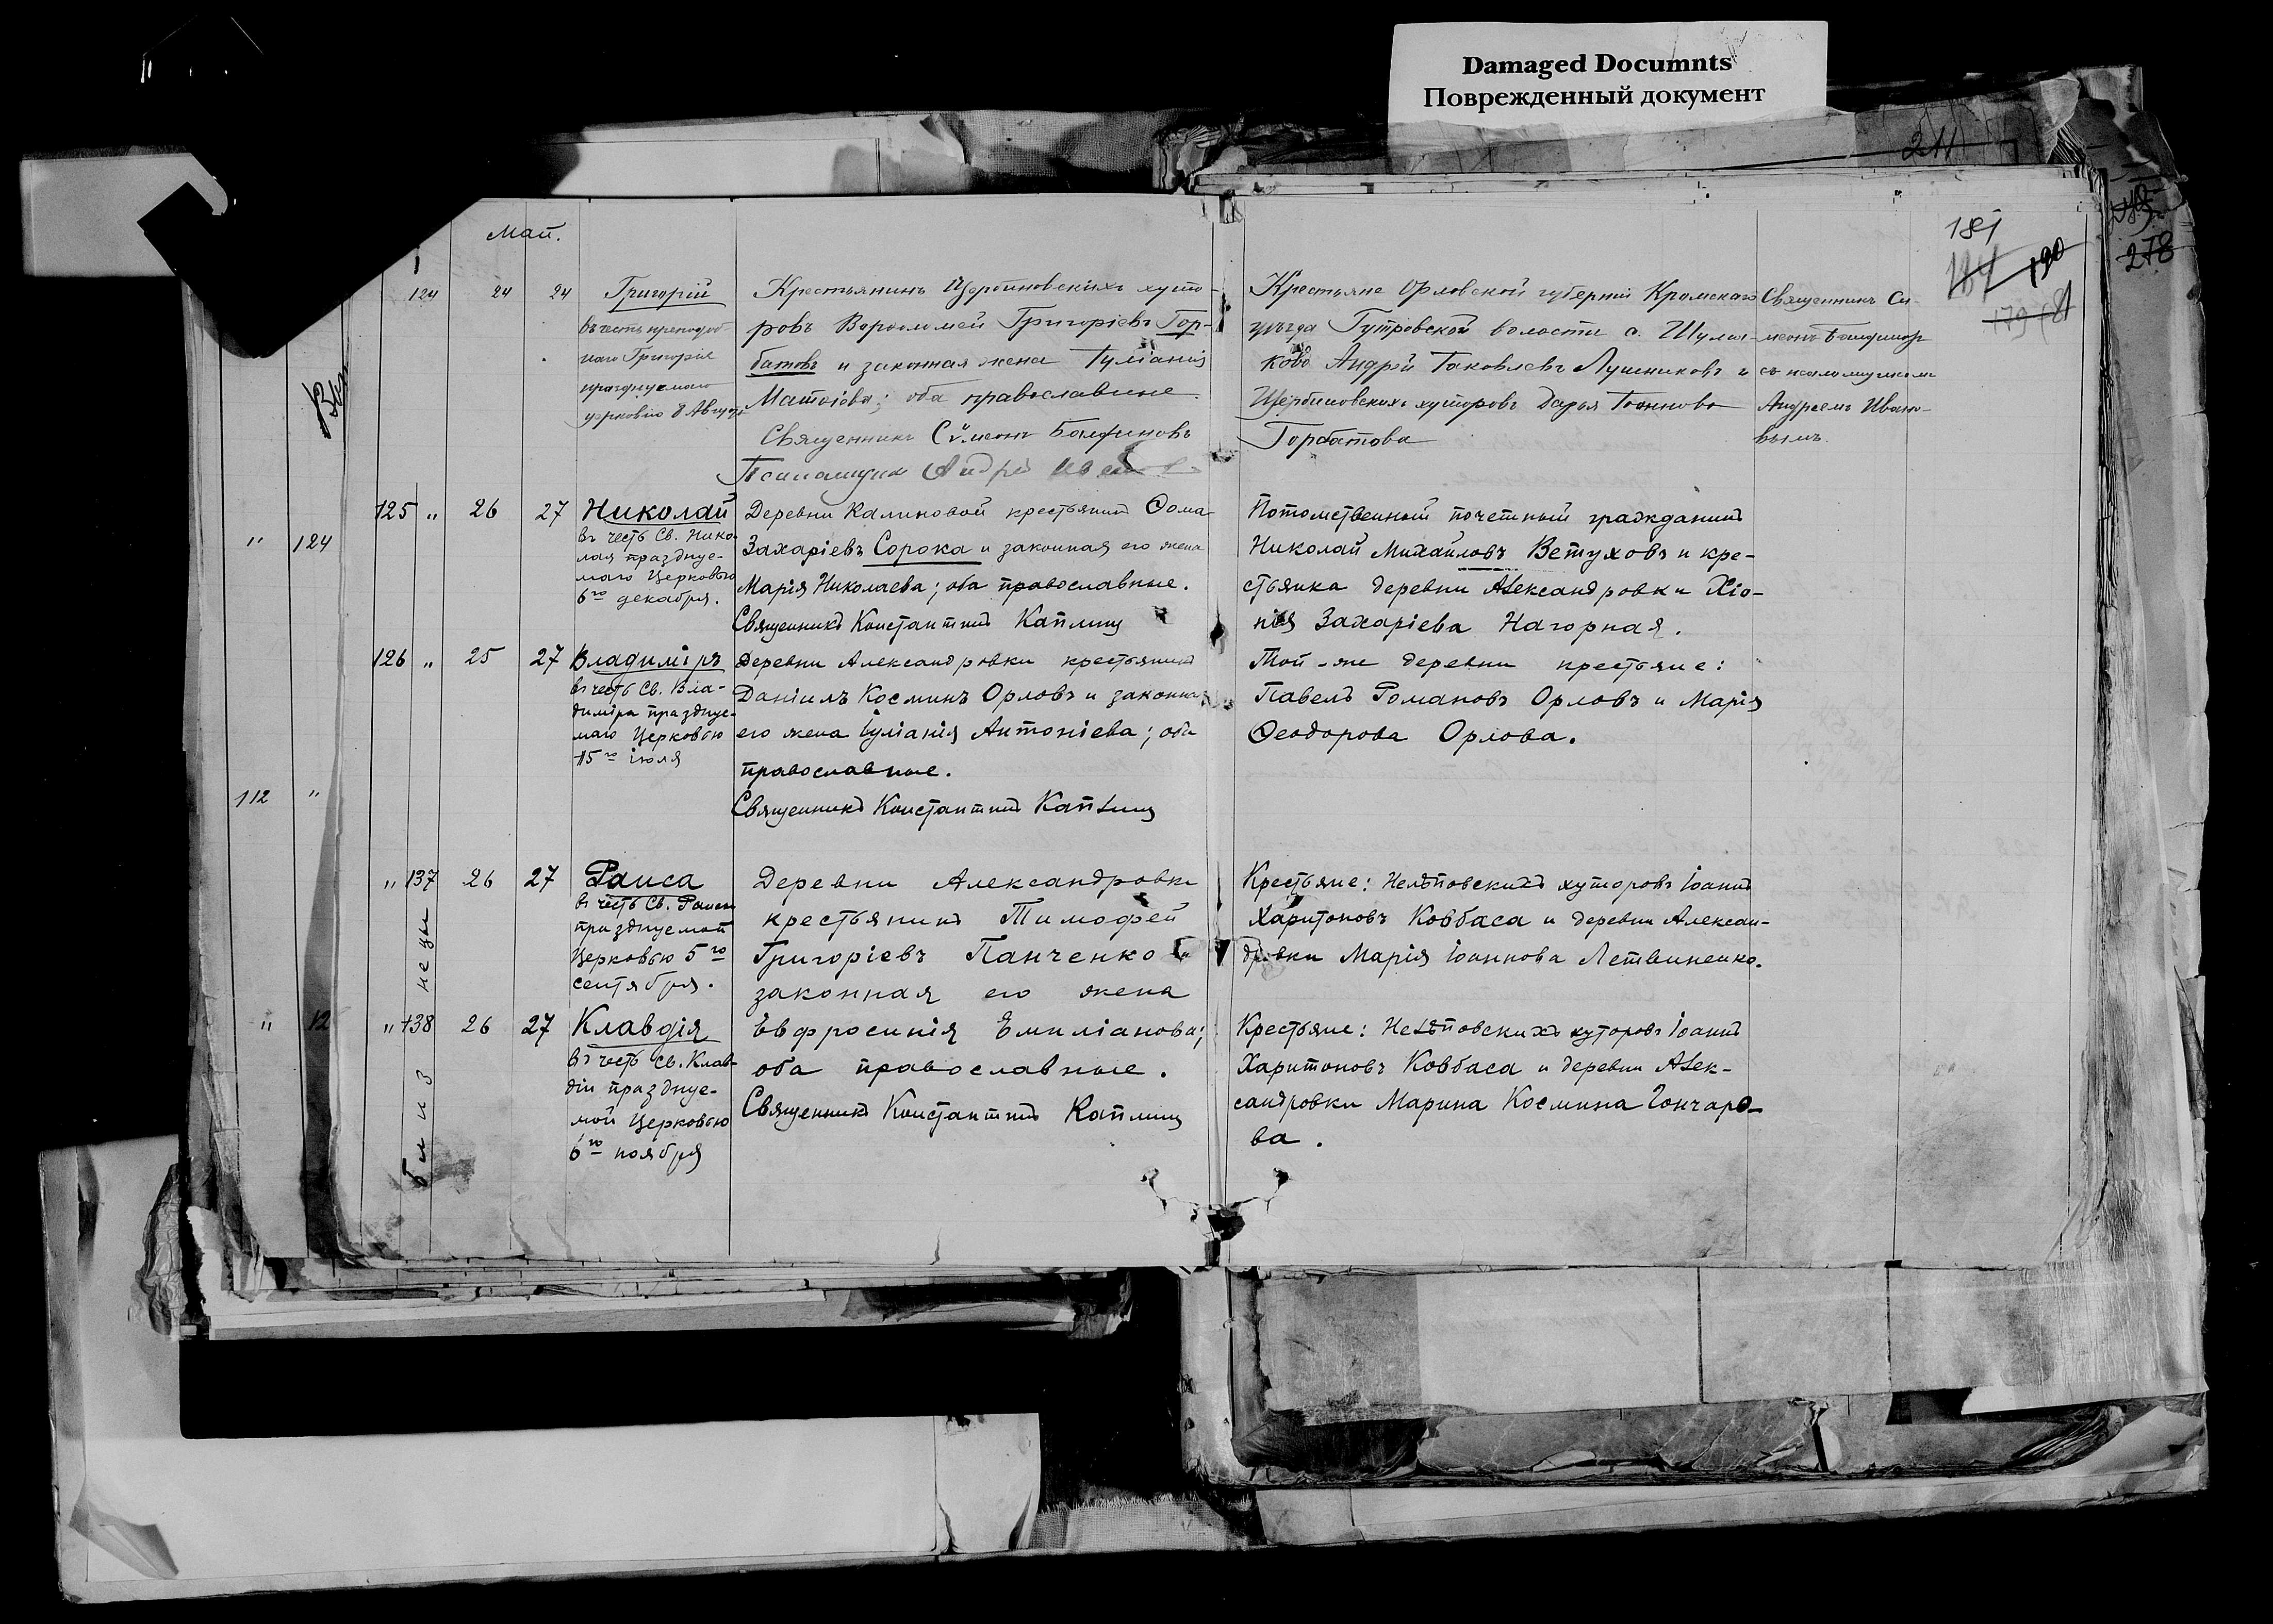 Damaged Documnts
Поврежденный документ
211
278
181
190
Май.
124 24 24 Григорій
въ честь преподоб-
наго Григорія
празднуемаго
церковію 8 Августа
Крестьянинъ Щербиновскихъ хуто-
ровъ Варѳоломей Григоріевъ Гор-
батовъ и законная жена Іуліанія
Матѳіева; оба православные.
Священникъ Сѵмеонъ
Псаломщикъ Андрей
Крестьяне Орловской губерніи Кромскаго
уѣзда Гутровской волости с.
ково Андрей Іаковлевъ Лушниковъ и
Щербиновскихъ хуторовъ Дарья Іоаннова
Горбатова
Священникъ Си-
меонъ
съ псаломщикомъ
Андреемъ Ивано-
вымъ.
" 124
125 " 26 27 Николай
въ честь Св. Нико-
лая праздпуе-
маго Церковью
6го декабря.
Деревни Калиновой крестьянинъ Ѳома
Захаріевъ Сорока и законная его жена
Марія Николаева; оба православные.
Священникъ Константинъ Каплинъ
Потомственный почетный гражданинъ
Николай Михайловъ Ветуховъ и кре-
стьянка деревни Александровки Хіо-
нія Захаріева Нагорная.
126 " 25 27 Владиміръ
въ честь Св. Вла-
диміра празднуе-
маго Церковью
15го іюля
Деревни Александровки крестьянинъ
Даніилъ Косминъ Орловъ и законная
его жена Іуліанія Антоніева; оба
православные.
Священникъ Константинъ Каплинъ
Той-же деревни крестьяне:
Павелъ Романовъ Орловъ и Марія
Ѳеодорова Орлова.
112 "
" 137 26 27 Раиса
въ честь Св. Раисы
празднуемой
Церковью 5го
сентября.
Деревни Александровки
крестьянинъ Тимофей
Григоріевъ Панченко и
законная его жена
Евфросинія Емиліанова;
оба православные.
Священникъ Константинъ Каплинъ
Крестьяне: Нелѣповскихъ хуторовъ Іоаннъ
Харитоновъ Ковбаса и деревни Алексан-
дровки Марія Іоаннова Летвиненко.
близнецы
" 12
" 138 26 27 Клавдія
въ честь Св. Клав-
діи празднуе-
мой Церковью
6го ноября
Крестьяне: Нелѣповскихъ хуторовъ Іоаннъ
Харитоновъ Ковбаса и деревни Алек-
сандровки Марина Космина Гончаро-
ва.